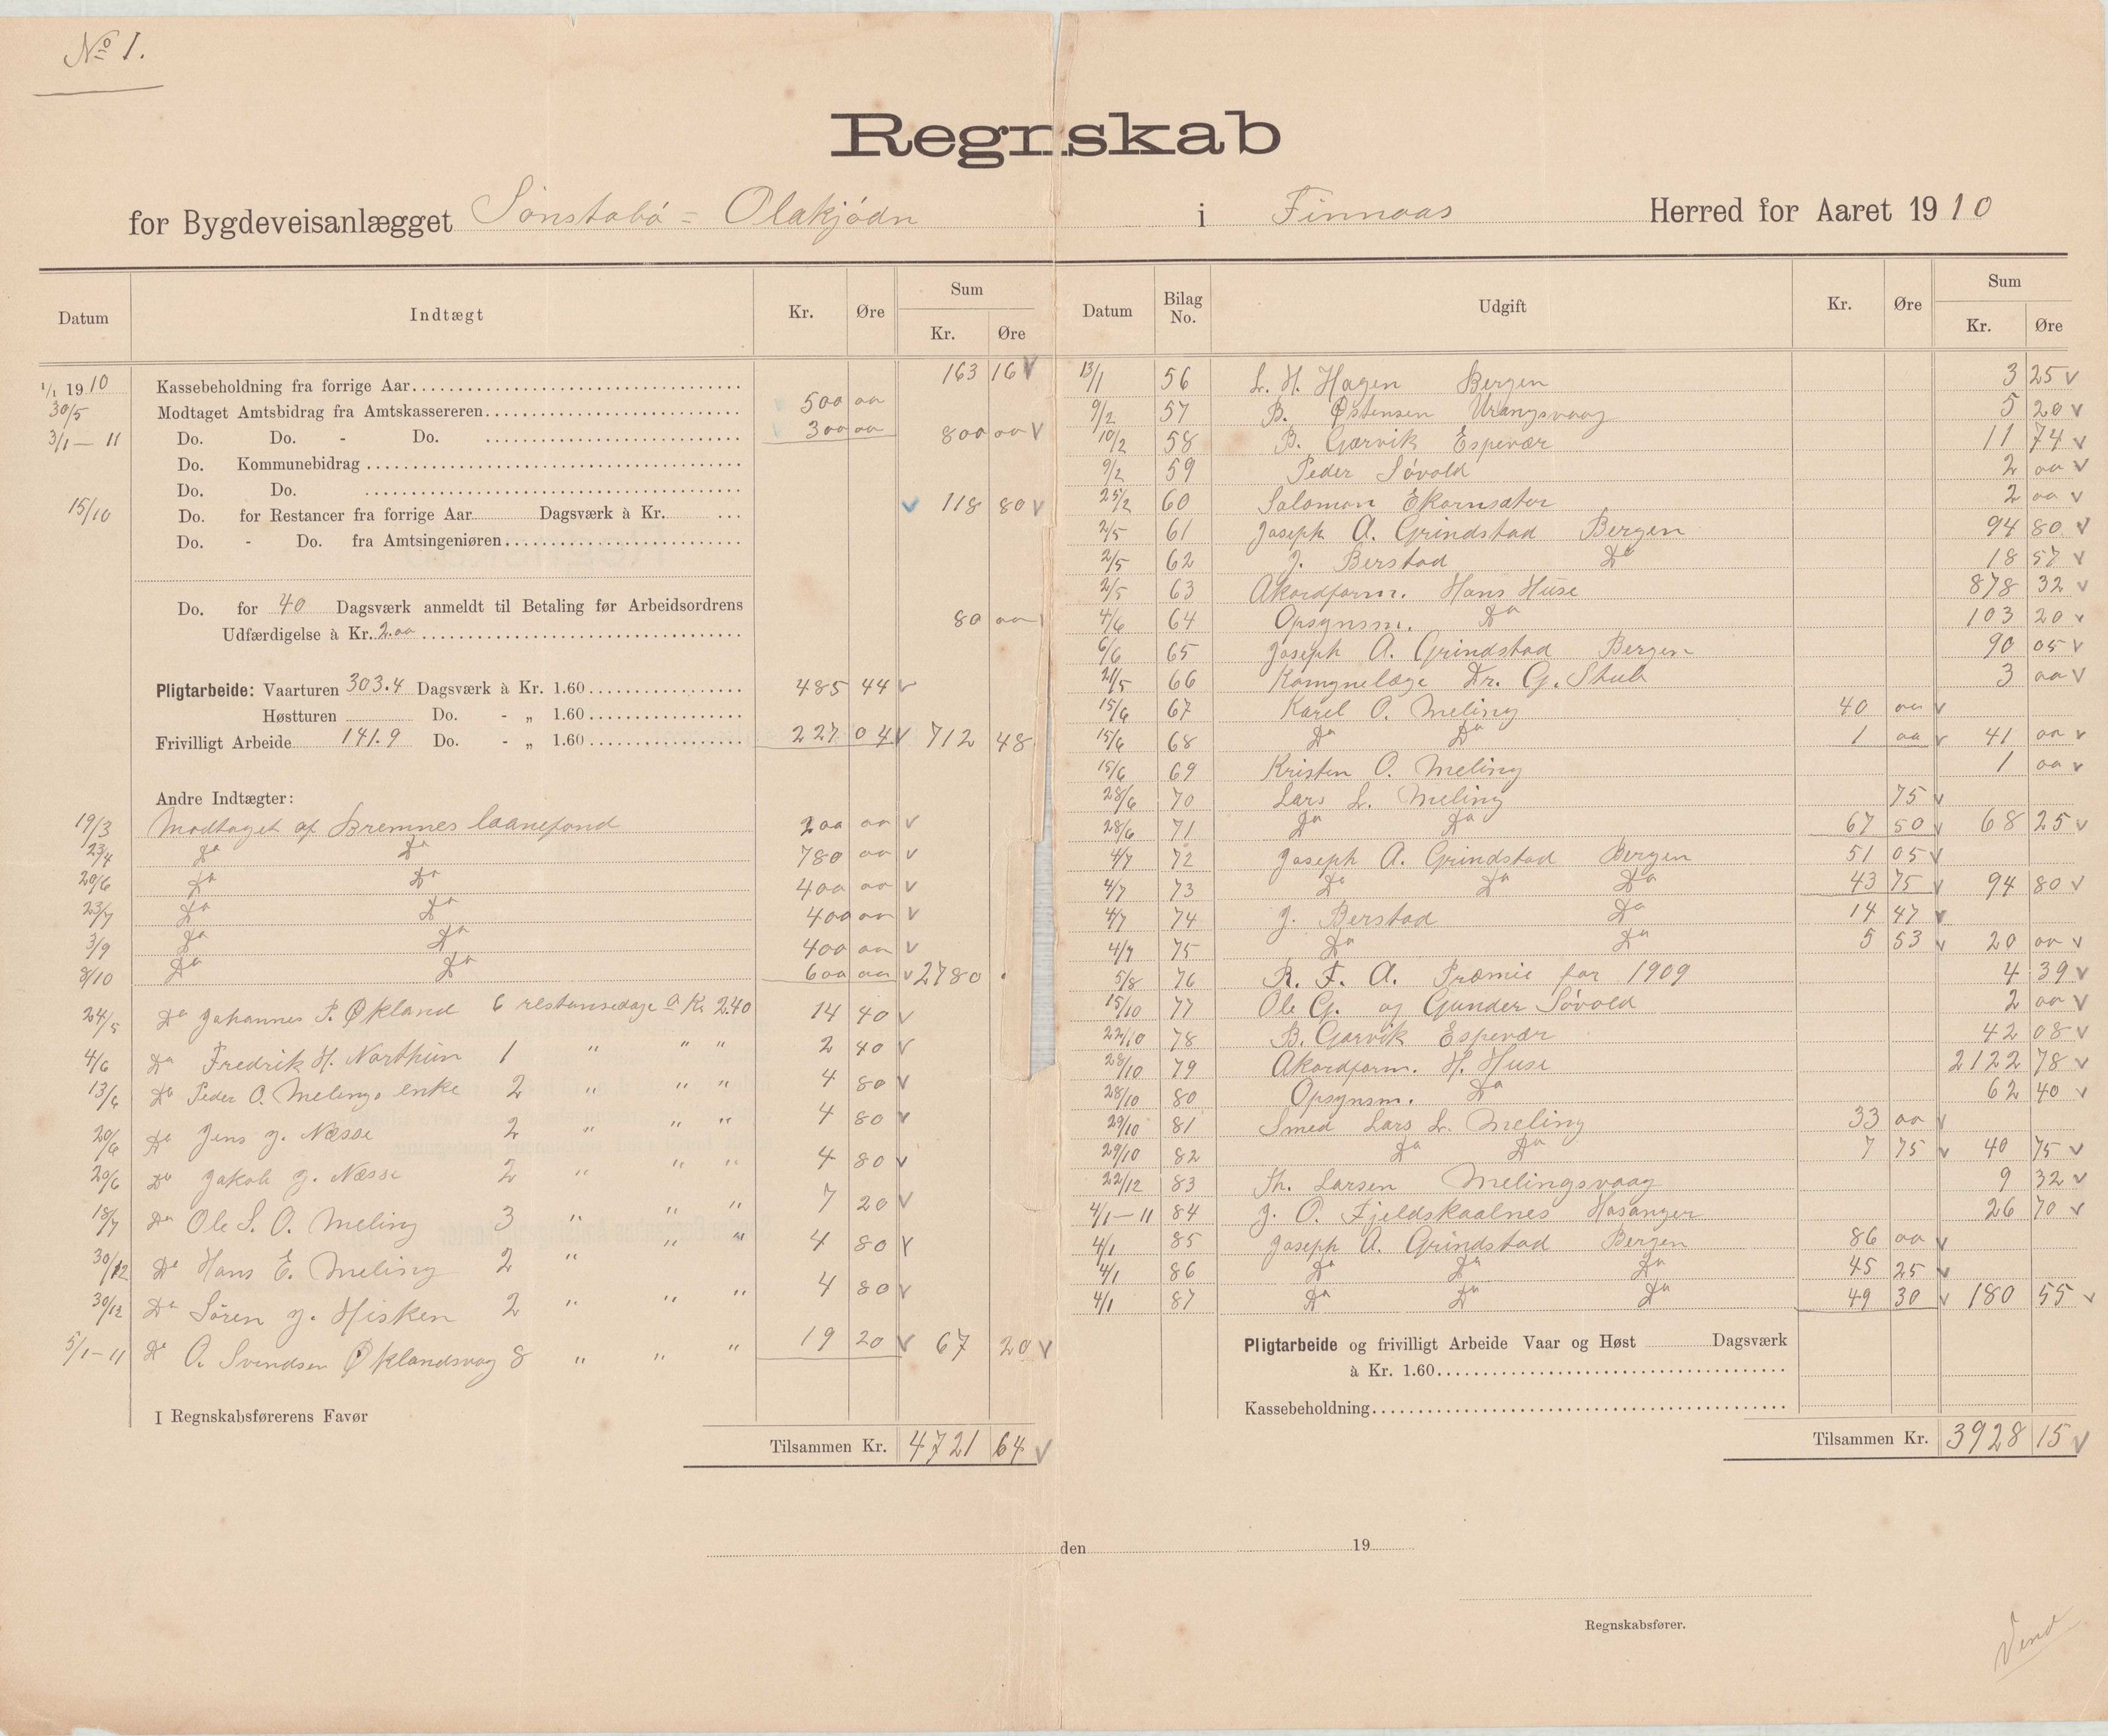 No 1.
Regnskab
for Bygdeveisanlægget Sønstabø = Olakjødn i Finnaas Herred for Aaret 1910
Datum Indtægt Kr. Øre Sum Kr. Øre
1/1 1910 Kassebeholdning fra forrige Aar 163 16 v
30/5 Modtaget Amtsbidrag fra Amtskassereren 500 00
3/1 – 11 Do. Do. - Do. 300 00 800 00 v
Do. Kommunebidrag
Do. Do.
15/10 Do. for Restancer fra forrige Aar Dagsværk à Kr. v 118 80 v
Do. - Do. fra Amtsingeniøren
Do. for 40 Dagsværk anmeldt til Betaling før Arbeidsordrens
Udfærdigelse à Kr. 2.00 80 00
Pligtarbeide: Vaarturen 303.4 Dagsværk à Kr. 1.60 485 44 v
Høstturen Do. - „ 1.60
Frivilligt Arbeide 141.9 Do. - „ 1.60 227 04 v 712 48
Andre Indtægter:
19/3 Modtaget af Bremnes laanefond 200 00 v
23/4 Do Do 780 00 v
20/6 Do Do 400 00 v
23/7 Do Do 400 00 v
3/9 Do Do 400 00 v
8/10 Do Do 600 00 v 2780 .
24/5 Do Johannes P. Økland 6 restansedage a Kr 2.40 14 40 v
4/6 Do Fredrik H. Northun 1 " " " 2 40 v
13/6 Do Peder O. Melings enke 2 " " " 4 80 v
20/6 Do Jens J. Næsse 2 " " " 4 80 v
20/6 Do Jakob J. Næsse 2 " " " 4 80 v
18/7 Do Ole S. O. Meling 3 " " " 7 20 v
30/12 Do Hans E. Meling 2 " " " 4 80 v
30/12 Do Søren J. Hisken 2 " " " 4 80 v
5/1 – 11 Do O. Svendsen Øklandsvag 8 " " " 19 20 v 67 20 v
I Regnskabsførerens Favør
Tilsammen Kr. 4721 64 v
Datum Bilag No. Udgift Kr. Øre Sum Kr. Øre
13/1 56 L. H. Hagen Bergen 3 25 v
9/2 57 B. Østensen Urangsvaag 5 20 v
10/2 58 B. Gærvik Espevær 11 74 v
9/2 59 Peder Søvold 2 00 v
25/2 60 Salomon Ekornsæter 2 00 v
2/5 61 Joseph A. Grindstad Bergen 94 80 v
2/5 62 J. Berstad Do 18 57 v
2/5 63 Akordform. Hans Huse 878 32 v
4/6 64 Opsynsm. Do 103 20 v
6/6 65 Joseph A. Grindstad Bergen 90 05 v
21/5 66 Komynelæge Dr. G. Stub 3 00 v
15/6 67 Karel O. Meling 40 00 v
15/6 68 Do Do 1 00 v 41 00 v
15/6 69 Kristen O. Meling 1 00 v
28/6 70 Lars L. Meling 75 v
28/6 71 Do Do 67 50 v 68 25 v
4/7 72 Joseph A. Grindstad Bergen 51 05 v
4/7 73 Do Do Do 43 75 v 94 80 v
4/7 74 J. Berstad Do 14 47 v
4/7 75 Do Do 5 53 v 20 00 v
5/8 76 R. F. A. Præmie for 1909 4 39 v
15/10 77 Ole G. og Gunder Søvold 2 00 v
22/10 78 B. Gærvik Espevær 42 08 v
28/10 79 Akordform. H. Huse 2122 78 v
28/10 80 Opsynsm. Do 62 40 v
29/10 81 Smed Lars L. Meling 33 00 v
29/10 82 Do Do 7 75 v 40 75 v
22/12 83 Th. Larsen Melingsvaag 9 32 v
4/1 – 11 84 J. O. Fjeldskaalnes Mosanger 26 70 v
4/1 85 Joseph A. Grindstad Bergen 86 00 v
4/1 86 Do Do Do 45 25 v
4/1 87 Do Do Do 49 30 v 180 55 v
Pligtarbeide og frivilligt Arbeide Vaar og Høst Dagsværk
à Kr. 1.60
Kassebeholdning
Tilsammen Kr. 3928 15 v
den 19
Regnskabsfører.
Vend